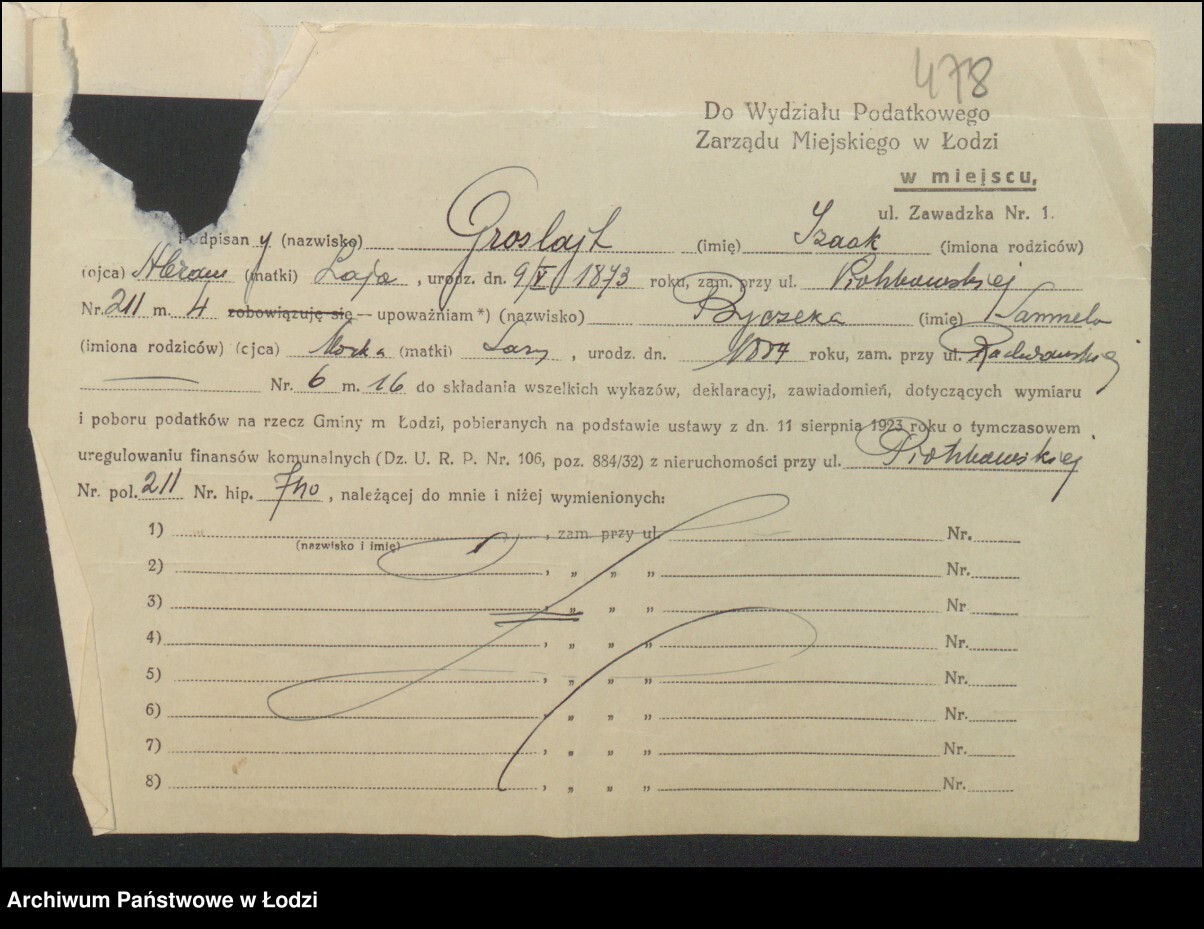 478
Do Wydziału Podatkowego
Zarządu Miejskiego w Łodzi
w miejscu,
ul. Zawadzka Nr. 1.
Podpisany (nazwisko) Groslajt (imię) Izaak (imiona rodziców)
(ojca) Abram (matki) Łaja, urodz. dn. 9/V 1873 roku, zam. przy ul. Piotrkowskiej
Nr. 211 m. 4 zobowiązuję się — upoważniam *) (nazwisko) (imię) Sammela
(imiona rodziców) (ojca) Moszka (matki) Sary, urodz. dn. 1884 roku, zam. przy ul. Radwańskiej
Nr. 6 m. 16 do składania wszelkich wykazów, deklaracyj, zawiadomień, dotyczących wymiaru
i poboru podatków na rzecz Gminy m Łodzi, pobieranych na podstawie ustawy z dn. 11 sierpnia 1923 roku o tymczasowem
uregulowaniu finansów komunalnych (Dz. U. R. P. Nr. 106, poz. 884/32) z nieruchomości przy ul. Piotrkowskiej
Nr. pol. 211 Nr. hip. 740, należącej do mnie i niżej wymienionych:
1) , zam. przy ul. Nr.
(nazwisko i imię)
2) , „ „ „ Nr.
3) , „ „ „ Nr
4) , „ „ „ Nr.
5) , „ „ „ Nr.
6) , „ „ „ Nr.
7) , „ „ „ Nr.
8) , „ „ „ Nr.
Archiwum Państwowe w Łodzi